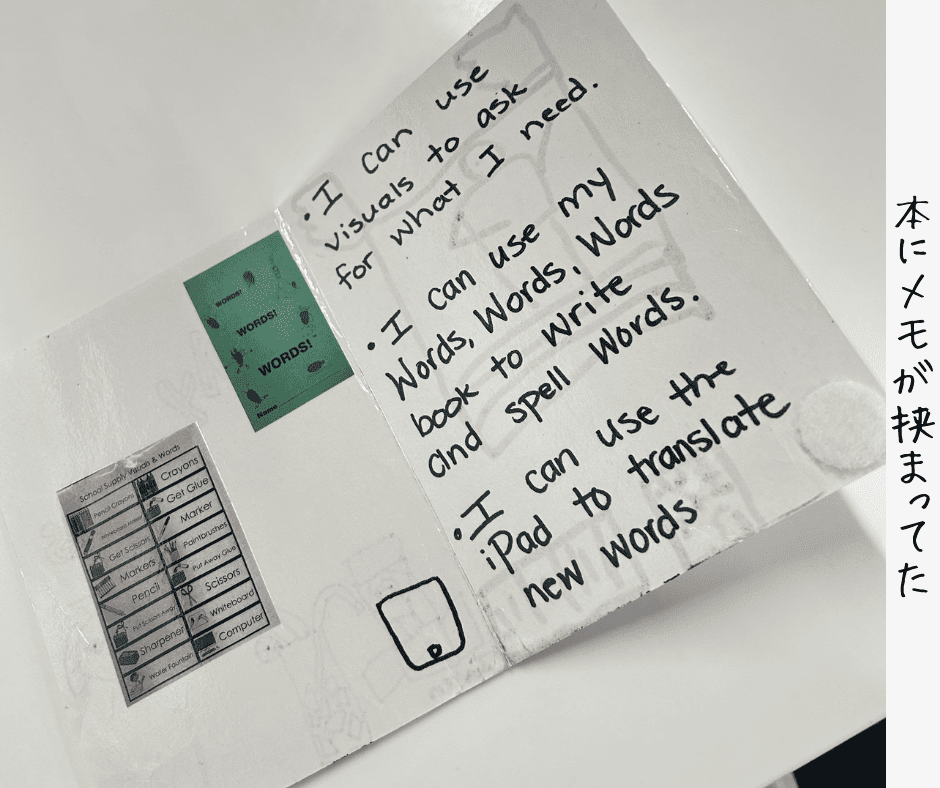 • I can use
visuals to ask
for what I need.
• I can use my
Words, Words, Words
book to write
and spell words.
• I can use the
iPad to translate
new words
WORDS!
WORDS!
WORDS!
Name
School Supply Visuals & Words
Pencil Crayons
Crayons
Whiteboard Marker
Get Glue
Get Scissors
Marker
Markers
Paintbrushes
Pencil
Put Away Glue
Put Scissors Away
Scissors
Sharpener
Whiteboard
Water Fountain
Computer
本にメモが挟まってた